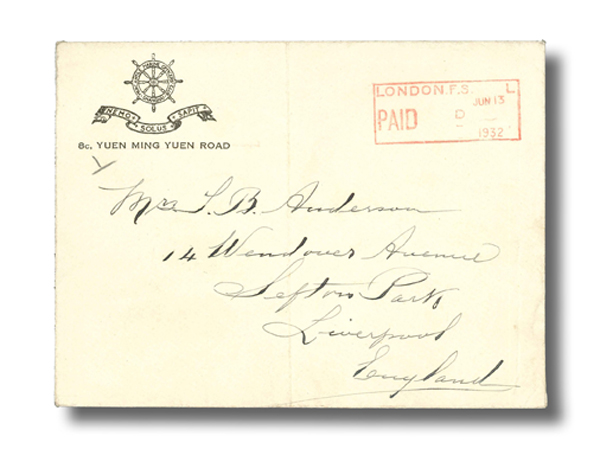 NEMO SOLUS SAPIT
8c. YUEN MING YUEN ROAD
LONDON.F.S. L
PAID D JUN 13
1932
Mrs S. B. Anderson
14 Wendover Avenue
Sefton Park
Liverpool
England